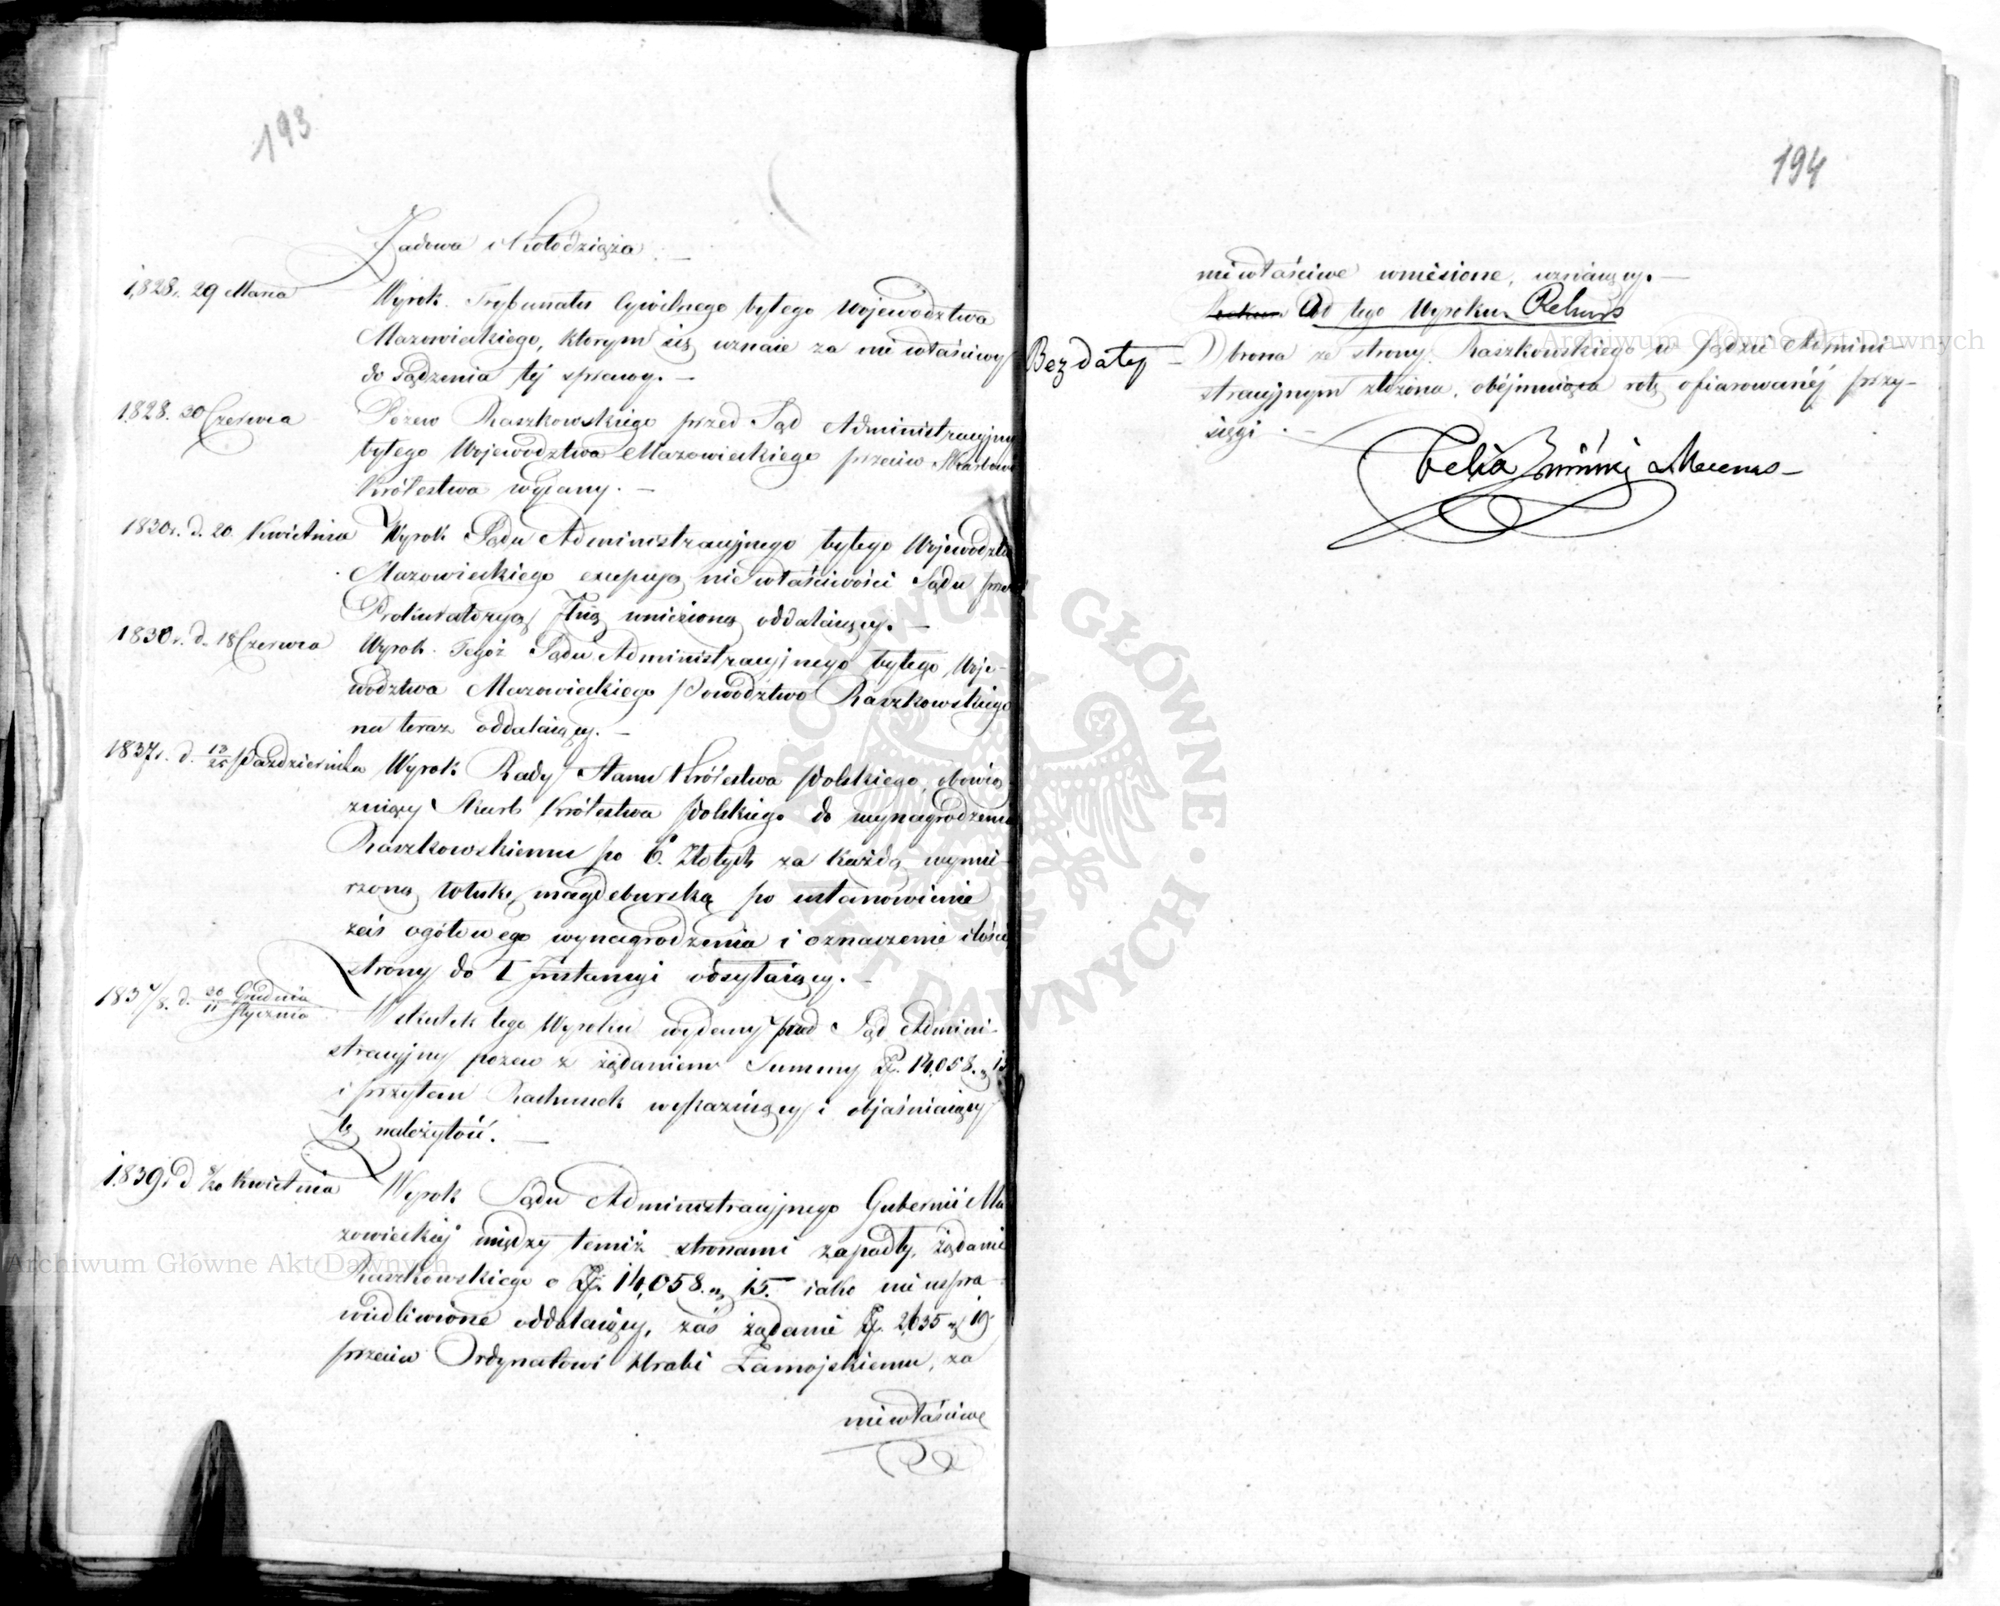 193
Jadowa i Kołodziąża. —
1828. 29 Marca Wyrok Trybunału Cywilnego byłego Województwa
Mazowieckiego, którym się uznaie za niewłaściwy
do sądzenia téj sprawy. —
1828. 30 Czerwca Pozew Raszkowskiego przed Sąd Administracyjny
byłego Województwa Mazowieckiego przeciw Skarbowi
Królestwa wydany. —
1830r. d. 20 Kwietnia Wyrok Sądu Administracyjnego byłego Województwa
Mazowieckiego excepcyą niewłaściwości Sądu przez
Prokuratoryą Jlną wniesioną oddalaiący. —
1830r. d. 18 Czerwca Wyrok Tegoż Sądu Administracyjnego byłego Woje-
wództwa Mazowieckiego Powództwo Raszkowskiego
na teraz oddalaiący. —
1837r. d. 13/25 Października Wyrok Rady Stanu Królestwa Polskiego, obowią-
zuiący Skarb Królestwa Polskiego do wynagrodzenia
Raszkowskiemu po 6. Złotych za każdą wymie-
rzoną włukę magdeburską po ustanowienie
zaś ogółowego wynagrodzenia i oznaczenie ilości
strony do I Instancyi odsyłaiący. —
1837/8. d. 30 Grudnia/11 Stycznia Wskutek tego Wyroku wydany przed Sąd Admini-
stracyjny pozew z żądaniem Summy Zł. 14,058. g. 15
i przytem Rachunek wykazuiący i objaśniaiący
tę należytość. —
1839r. d 8/20 Kwietnia Wyrok Sądu Administracyjnego Gubernii Ma-
zowieckiéj między temiż stronami zapadły, żądanie
Raszkowskiego o Zł. 14,058. g. 15. iako nieuspra-
wiedliwione oddalaiący, zaś żądanie Zł. 2635 g. 19
przeciw Ordynatowi Hrabi Zamojskiemu, za
niewłaściwe
194
niewłaściwe wniesione, uznaiący. —
Od tego Wyroku Rekurs
Bez daty — Obrona ze strony Raszkowskiego w Sądzie Admini-
stracyjnym złożona, obéjmuiąca rotę ofiarowanéj przy-
sięgi. —
Felix Mecenas
Archiwum Główne Akt Dawnych
Archiwum Główne Akt Dawnych
ARCHIWUM GŁÓWNE AKT DAWNYCH